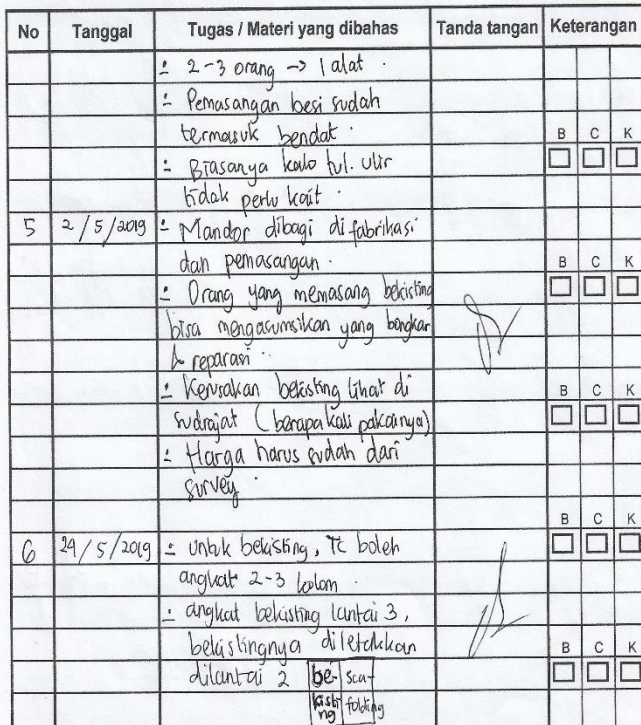 No Tanggal Tugas / Materi yang dibahas Tanda tangan Keterangan
- 2-3 orang -> 1 alat.
- Pemasangan besi sudah
termasuk bendat.
B C K
- Biasanya kalo tul. ulir
tidak perlu kait.
5 2/5/2019 - Mandor dibagi di fabrikasi
dan pemasangan.
B C K
- Orang yang memasang bekisting
bisa mengasumsikan yang bongkar
& reparasi.
- Kerusakan bekisting lihat di
B C K
sudrajat (berapa kali pakainya)
- Harga harus sudah dari
survey.
B C K
6 24/5/2019 - untuk bekisting, TC boleh
angkat 2-3 kolom.
- angkat bekisting lantai 3,
bekistingnya diletakkan
B C K
dilantai 2
be- sca-
kisti ng folding